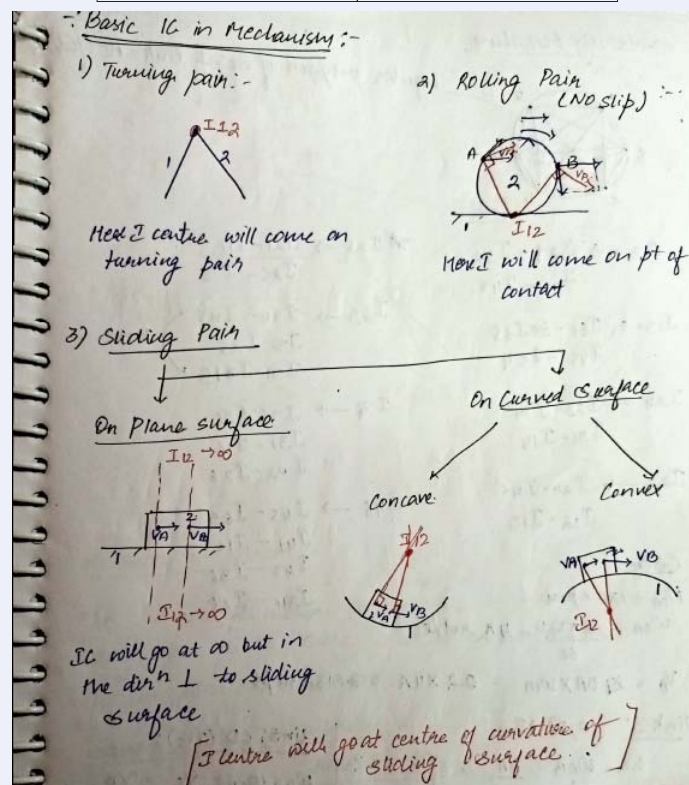 :- Basic IC in Mechanism:-
1) Turning pair:-
I12
1 2
Here I centre will come on
turning pair
2) Rolling Pair :-
(No slip)
A VA B VB
2
1 I12
Here I will come on pt of
contact
3) Sliding Pair
On Plane surface
I12 → ∞
2
VA VB
1
I12 → ∞
IC will go at ∞ but in
the dirn ⊥ to sliding
surface
On Curved Surface
Concave
I12
2
VA VB
1
Convex
VA 2 VB
1
I12
[I centre will go at centre of curvature of
sliding surface.]